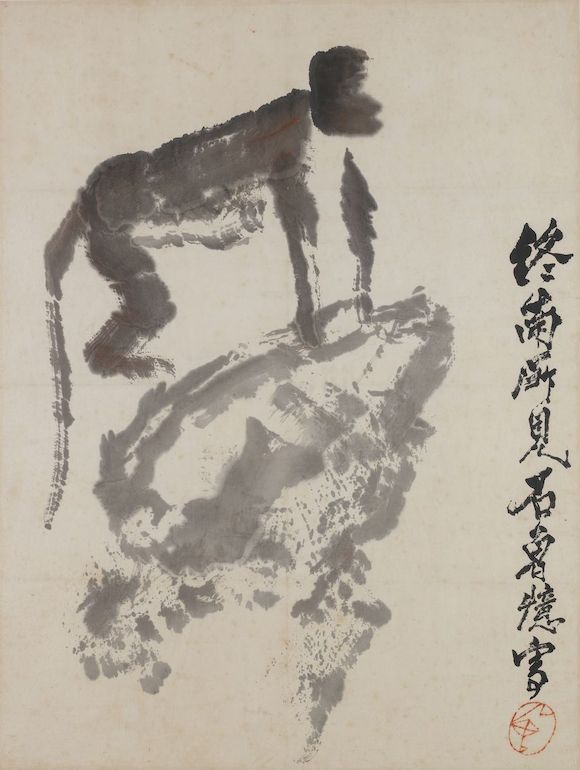 终南所見石魯憶寫